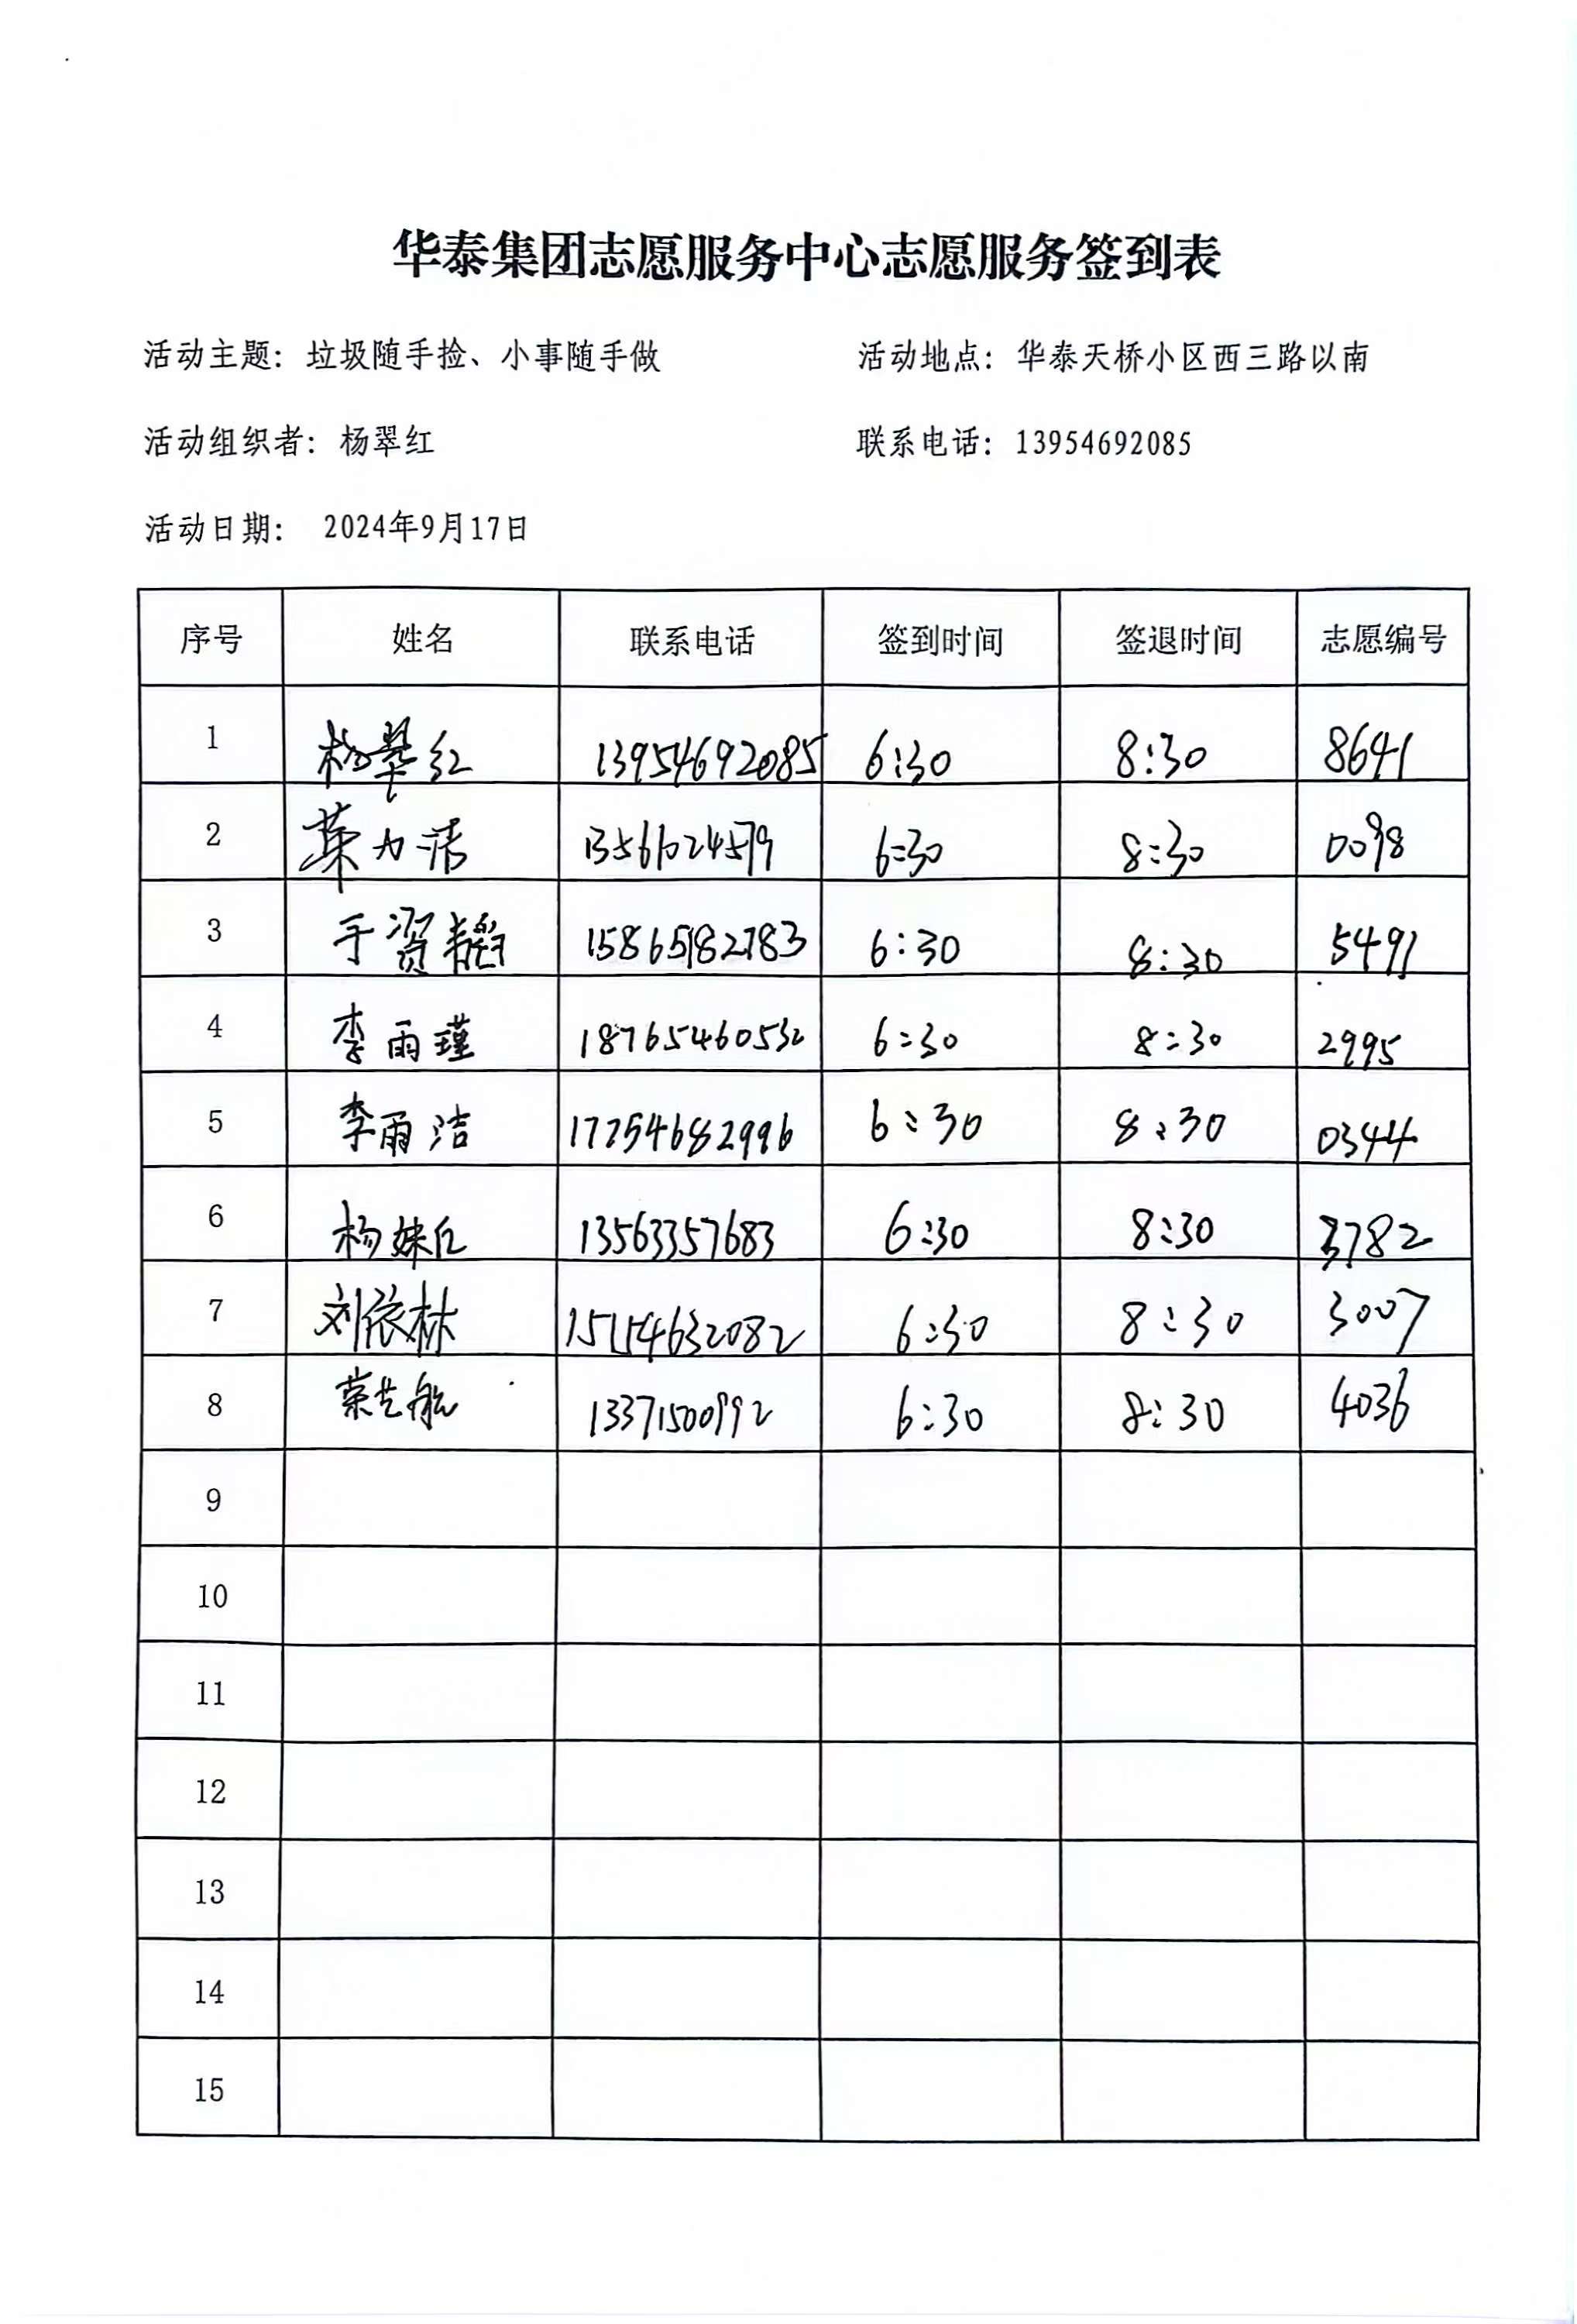 华泰集团志愿服务中心志愿服务签到表
活动主题：垃圾随手捡、小事随手做 活动地点：华泰天桥小区西三路以南
活动组织者：杨翠红 联系电话：13954692085
活动日期： 2024年9月17日
序号 姓名 联系电话 签到时间 签退时间 志愿编号
1 杨翠红 13954692085 6:30 8:30 8641
2 6:30 8:30 0098
3 15865182783 6:30 8:30 5491
4 李雨瑾 18765460532 6:30 8:30 2995
5 李雨洁 17754682996 6:30 8:30 0344
6 13563357683 6:30 8:30 3782
7 刘依林 15154632082 6:30 8:30 3007
8 13371500992 6:30 8:30 4036
9
10
11
12
13
14
15